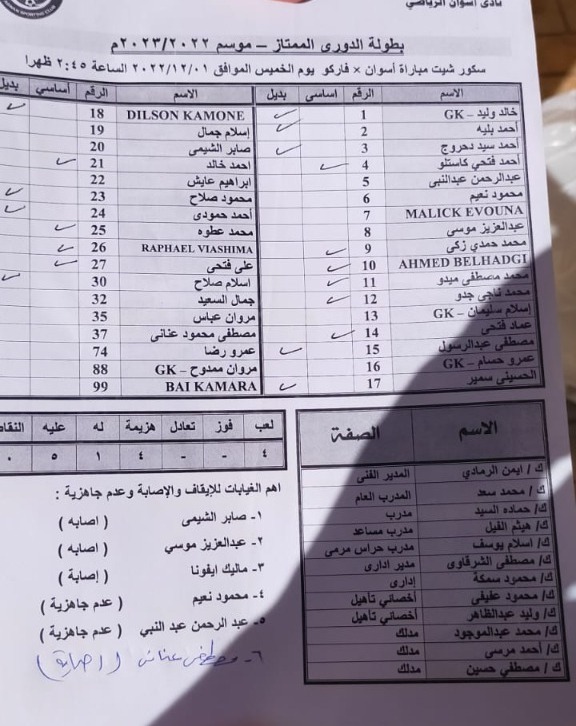 نادى أسوان الرياضي
بطولة الدورى الممتاز – موسم ٢٠٢٣/٢٠٢٢م
سكور شيت مباراة أسوان × فاركو يوم الخميس الموافق ٢٠٢٢/١٢/٠١ الساعة ٢:٤٥ ظهرا
الاسم الرقم اساسى بديل
خالد وليد – GK 1
أحمد بليه 2
أحمد سيد دحروج 3
أحمد فتحي كاستلو 4
عبدالرحمن عبدالنبى 5
محمود نعيم 6
MALICK EVOUNA 7
عبدالعزيز موسي 8
محمد حمدي زكى 9
AHMED BELHADGI 10
محمد مصطفى ميدو 11
محمد ناجى جدو 12
إسلام سليمان – GK 13
عماد فتحى 14
مصطفى عبدالرسول 15
عمرو حسام – GK 16
الحسينى سمير 17
الاسم الرقم أساسي بديل
DILSON KAMONE 18
إسلام جمال 19
صابر الشيمى 20
احمد خالد 21
ابراهيم عايش 22
محمود صلاح 23
أحمد حمودى 24
محمد عطوه 25
RAPHAEL VIASHIMA 26
على فتحى 27
اسلام صلاح 30
جمال السعيد 32
مروان عباس 35
مصطفى محمود عنانى 37
عمرو رضا 74
مروان ممدوح – GK 88
BAI KAMARA 99
الاسم الصفة
ك / ايمن الرمادي المدير الفنى
ك / محمد سعد المدرب العام
ك/ حماده السيد مدرب
ك/ هيثم الفيل مدرب مساعد
ك/ اسلام يوسف مدرب حراس مرمى
ك/ مصطفى الشرقاوى مدير ادارى
ك/ محمود سمكة إدارى
ك/ محمود عفيفي أخصائي تأهيل
ك/ وليد عبدالظاهر أخصائي تأهيل
ك/ محمد عبدالموجود مدلك
ك/ أحمد مرسى مدلك
ك / مصطفي حسين مدلك
لعب فوز تعادل هزيمة له عليه النقاط
٤ - - ٤ ١ ٥ ٠
اهم الغيابات للإيقاف والإصابة وعدم جاهزية :
١- صابر الشيمى ( اصابه )
٢- عبدالعزيز موسي ( اصابه )
٣- ماليك ايفونا ( إصابة )
٤- محمود نعيم ( عدم جاهزية )
٥- عبد الرحمن عبد النبي ( عدم جاهزية )
٦- مصطفى عنانى ( اصابة )